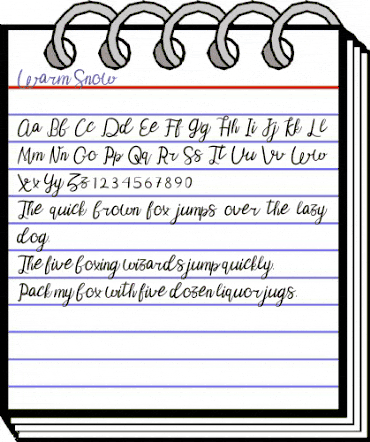 Warm Snow
Aa Bb Cc Dd Ee Ff Gg Hh Ii Jj Kk Ll
Mm Nn Oo Pp Qq Rr Ss Tt Uu Vv Ww
Xx Yy Zz 1 2 3 4 5 6 7 8 9 0
The quick brown fox jumps over the lazy
dog.
The five boxing wizards jump quickly.
Pack my box with five dozen liquor jugs.